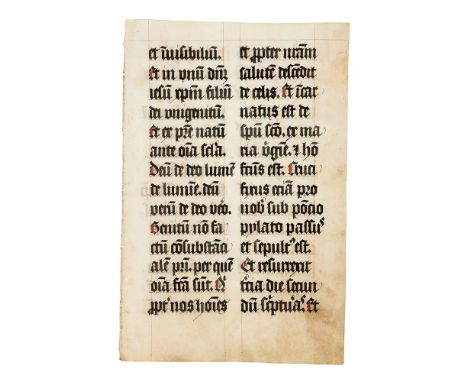 et īuisibiliū.
Et in vnū dn̄ꝫ
iesū xpm̄ filiū
dei vnigenitū.
Et ex pr̄e natū
ante oīa scl̄a.
Deū de deo lumē
de lumīe. deū
verū de deo v̄o.
Genitū nō fa
ctū cōsubstāci
alē pr̄i. per quē
oīa fc̄a sūt. Q̇
ꝓpt᷑ nos hoīes
et ꝓpter nr̄am
salutē descēdit
de celis. Et īcar
natus est de
spū sc̄o. ex ma
ria v̄gīe. ⁊ hō
fcūs est. Cruci
fixus eciā pro
nob̄ sub pōcio
pylato passuꝰ
et sepultꝰ est.
Et resurrexit
t̄cia die secun
dū sc̄ptura᷒. Et